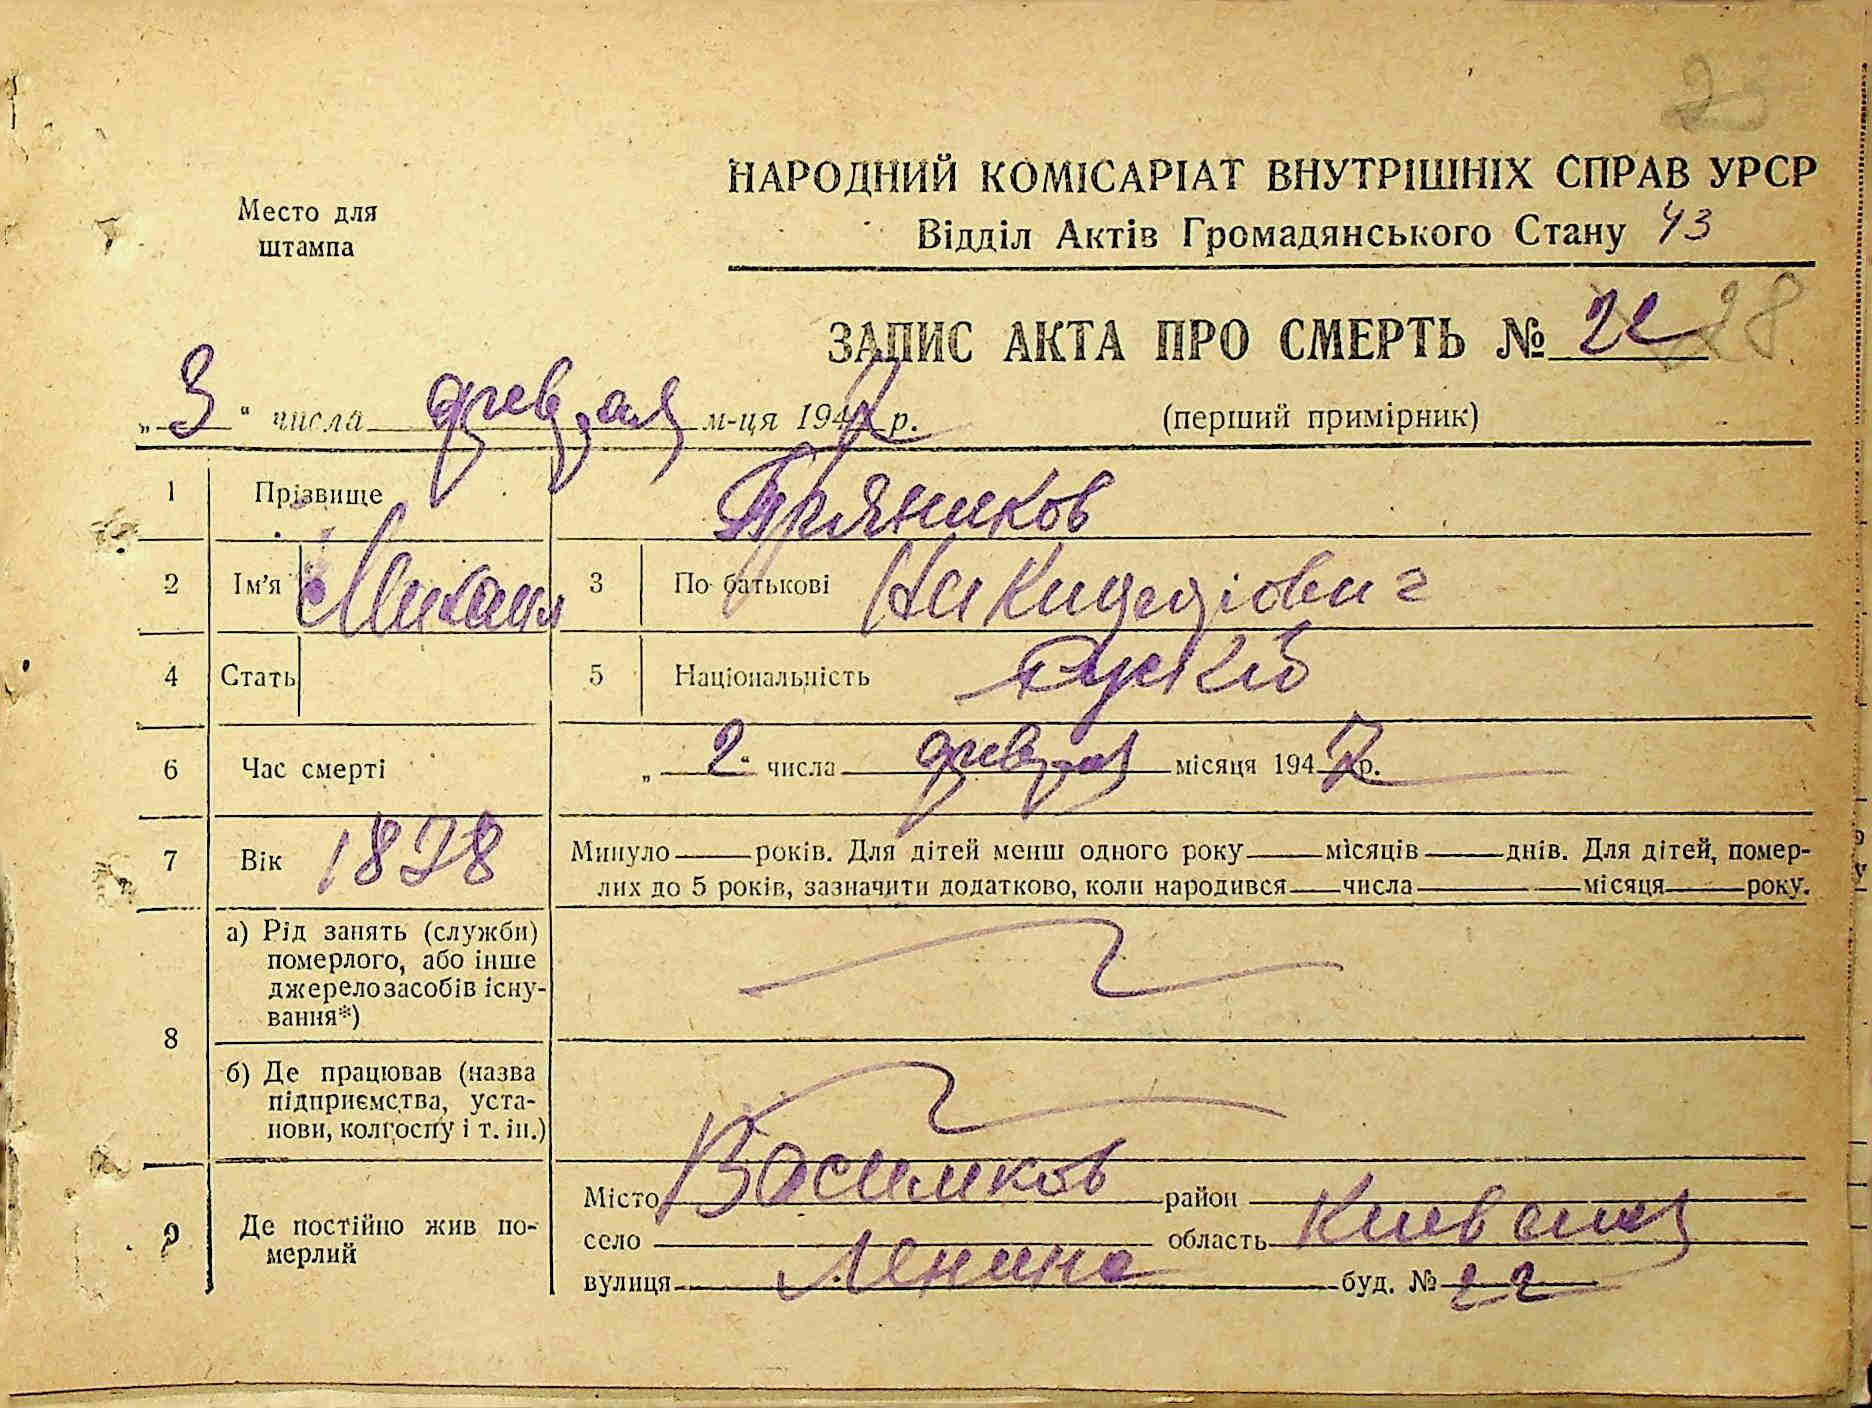 20
НАРОДНИЙ КОМІСАРІАТ ВНУТРІШНІХ СПРАВ УРСР
Место для
штампа
Відділ Актів Громадянського Стану 43
ЗАПИС АКТА ПРО СМЕРТЬ № 22 28
„ 3 " числа февраля м-ця 1947 р. (перший примірник)
1 Прізвище Пряников
2 Ім'я Михаил 3 По батькові
4 Стать 5 Національність Руский
6 Час смерті „ 2 " числа февраля місяця 1947 р.
7 Вік 1878 Минуло років. Для дітей менш одного року місяців днів. Для дітей, помер-
лих до 5 років, зазначити додатково, коли народився числа місяця року.
8 а) Рід занять (служби)
померлого, або інше
джерело засобів існу-
вання*)
б) Де працював (назва
підприємства, уста-
нови, колгоспу і т. ін.)
9 Де постійно жив по-
мерлий
Місто Васильков район
село область Киевская
вулиця Ленина буд. № 22